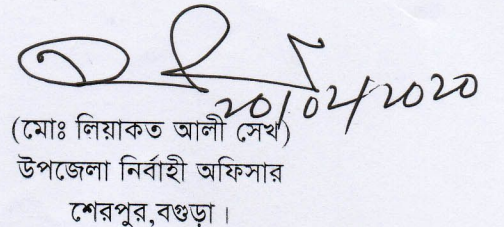 20/02/2020
(মোঃ লিয়াকত আলী সেখ)
উপজেলা নির্বাহী অফিসার
শেরপুর,বগুড়া।